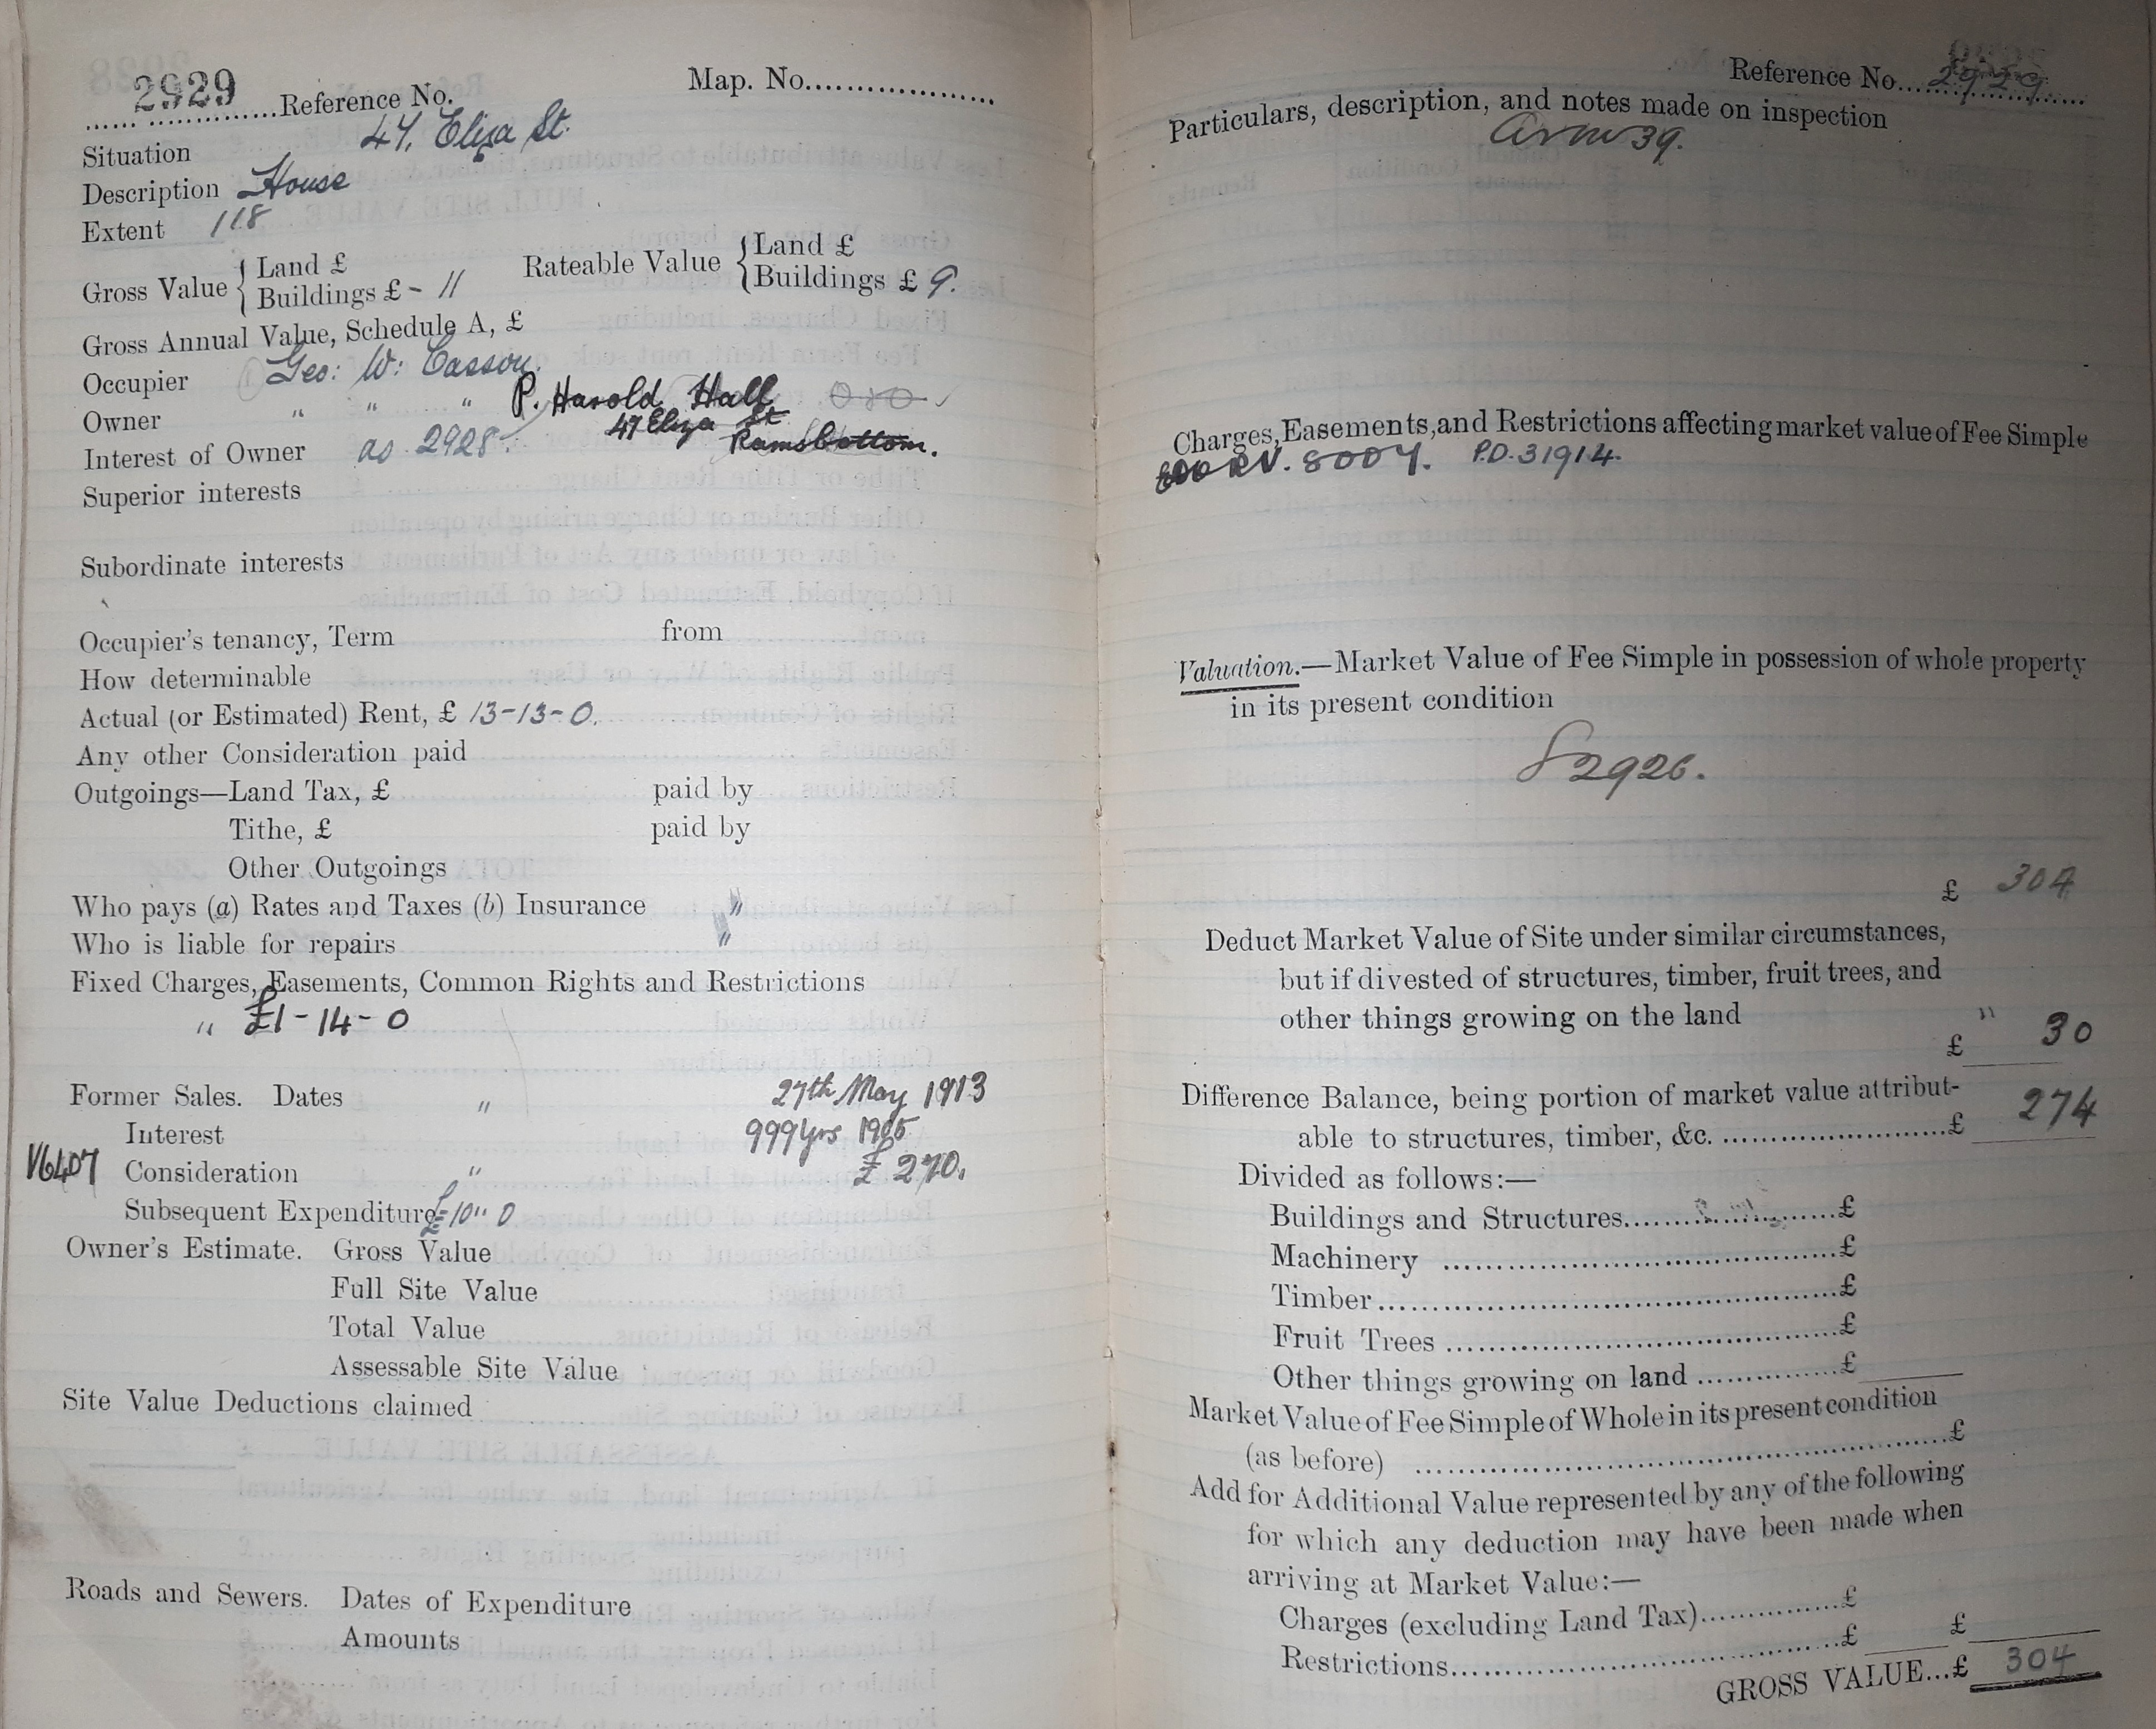 2929 Reference No. Map. No.
Situation 47, Eliza St.
Description House
Extent 118
Gross Value { Land £
Buildings £ - 11
Rateable Value { Land £
Buildings £ 9.
Gross Annual Value, Schedule A, £
Occupier Geo: W: Casson.
Owner " " " P. Harold Hall
47 Eliza St
Ramsbottom.
Interest of Owner as 2928.
Superior interests
Subordinate interests
Occupier's tenancy, Term from
How determinable
Actual (or Estimated) Rent, £ 13-13-0.
Any other Consideration paid
Outgoings—Land Tax, £ paid by
Tithe, £ paid by
Other Outgoings
Who pays (a) Rates and Taxes (b) Insurance "
Who is liable for repairs "
Fixed Charges, Easements, Common Rights and Restrictions
" £1-14-0
Former Sales. Dates " 27th May 1913
Interest 999 yrs 1905
V6407 Consideration " £ 270.
Subsequent Expenditure £10" 0
Owner's Estimate. Gross Value
Full Site Value
Total Value
Assessable Site Value
Site Value Deductions claimed
Roads and Sewers. Dates of Expenditure
Amounts
Reference No. 2929
Particulars, description, and notes made on inspection
39.
Charges, Easements, and Restrictions affecting market value of Fee Simple
RV. 8007. P.D. 31914.
Valuation.—Market Value of Fee Simple in possession of whole property
in its present condition
2926.
£ 304
Deduct Market Value of Site under similar circumstances,
but if divested of structures, timber, fruit trees, and
other things growing on the land "
£ 30
Difference Balance, being portion of market value attribut-
able to structures, timber, &c. £ 274
Divided as follows:—
Buildings and Structures £
Machinery £
Timber £
Fruit Trees £
Other things growing on land £
Market Value of Fee Simple of Whole in its present condition
(as before) £
Add for Additional Value represented by any of the following
for which any deduction may have been made when
arriving at Market Value:—
Charges (excluding Land Tax) £
Restrictions £ £
GROSS VALUE...£ 304